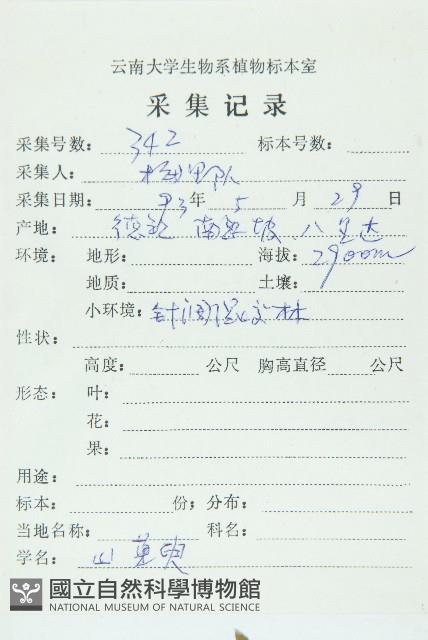 云南大学生物系植物标本室
采集记录
采集号数: 342 标本号数:
采集人: 梅里队
采集日期: 93 年 5 月 29 日
产地: 德钦 南坡、八里达
环境: 地形: 海拔: 2900m
地质: 土壤:
小环境: 针阔混交林
性状:
高度: 公尺 胸高直径 公尺
形态: 叶:
花:
果:
用途:
标本: 份; 分布:
当地名称: 科名:
学名: 山
國立自然科學博物館
NATIONAL MUSEUM OF NATURAL SCIENCE